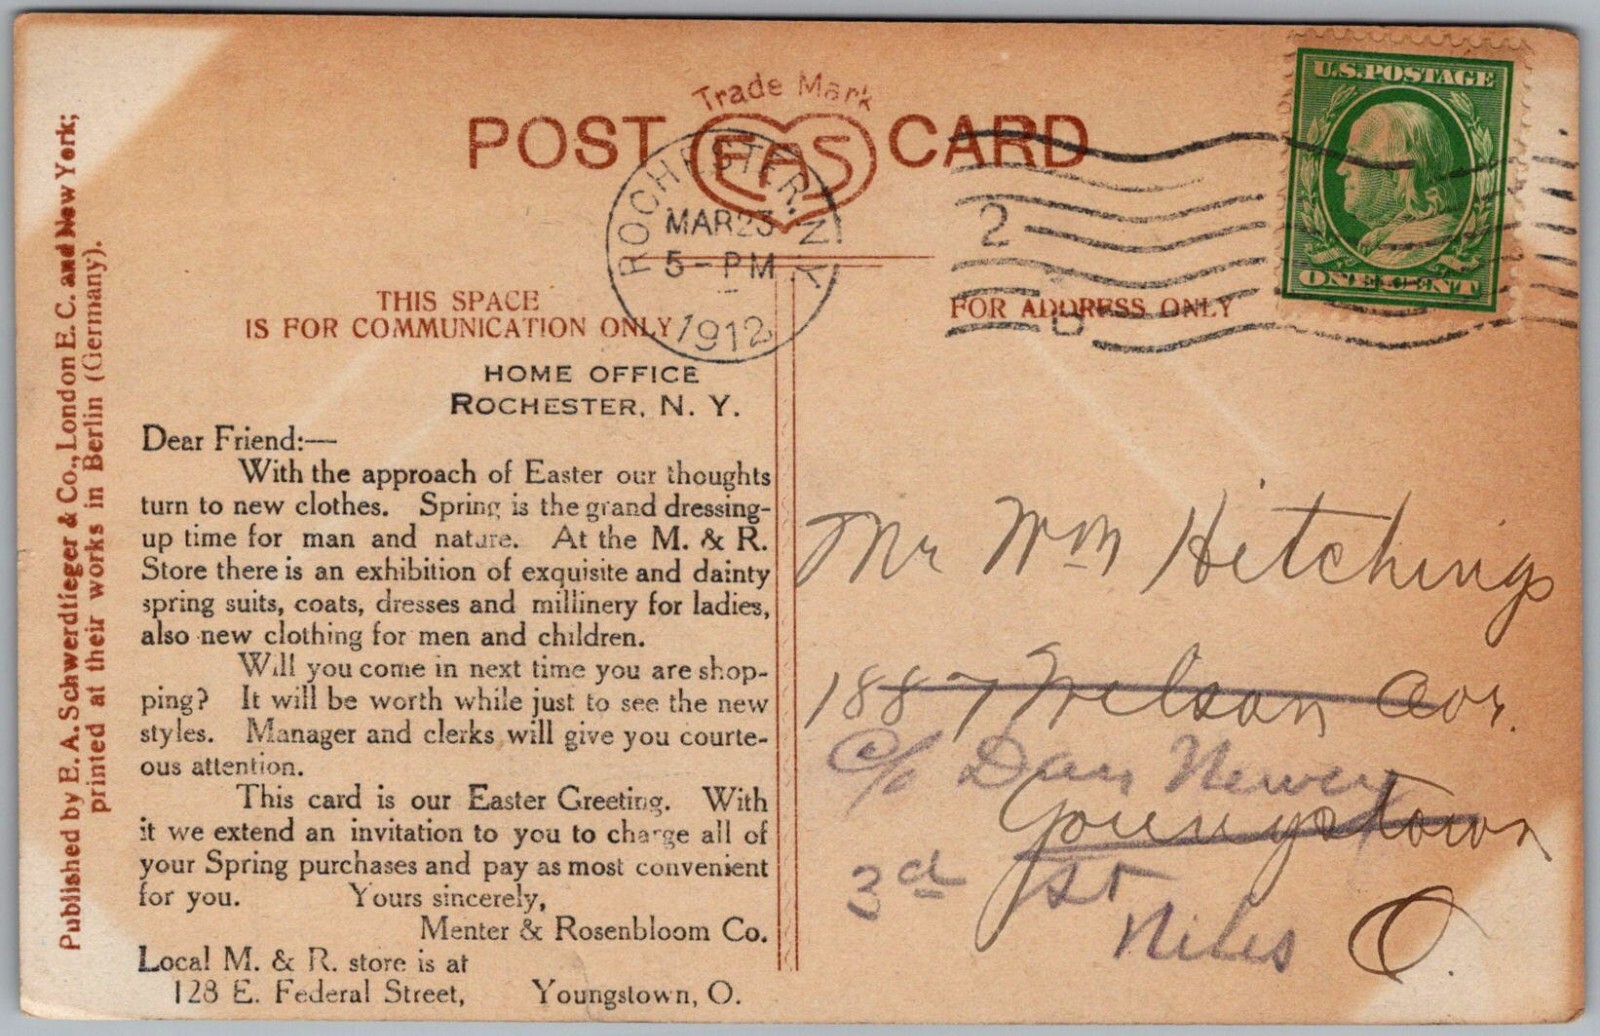 Published by E. A. Schwerdtfeger & Co., London E. C. and New York;
printed at their works in Berlin (Germany).
Trade Mark
POST EAS CARD
U.S. POSTAGE
ONE CENT
ROCHESTER. N.Y.
MAR 23
5 - PM
1912
2
D
THIS SPACE
IS FOR COMMUNICATION ONLY
FOR ADDRESS ONLY
HOME OFFICE
ROCHESTER, N. Y.
Dear Friend:—
With the approach of Easter our thoughts
turn to new clothes. Spring is the grand dressing-
up time for man and nature. At the M. & R.
Store there is an exhibition of exquisite and dainty
spring suits, coats, dresses and millinery for ladies,
also new clothing for men and children.
Will you come in next time you are shop-
ping? It will be worth while just to see the new
styles. Manager and clerks will give you courte-
ous attention.
This card is our Easter Greeting. With
it we extend an invitation to you to charge all of
your Spring purchases and pay as most convenient
for you. Yours sincerely,
Menter & Rosenbloom Co.
Local M. & R. store is at
128 E. Federal Street, Youngstown, O.
Mr Wm Hitchings
1887 Wilson Ave.
c/o Dan Newey
Youngstown
3d St
Niles O.